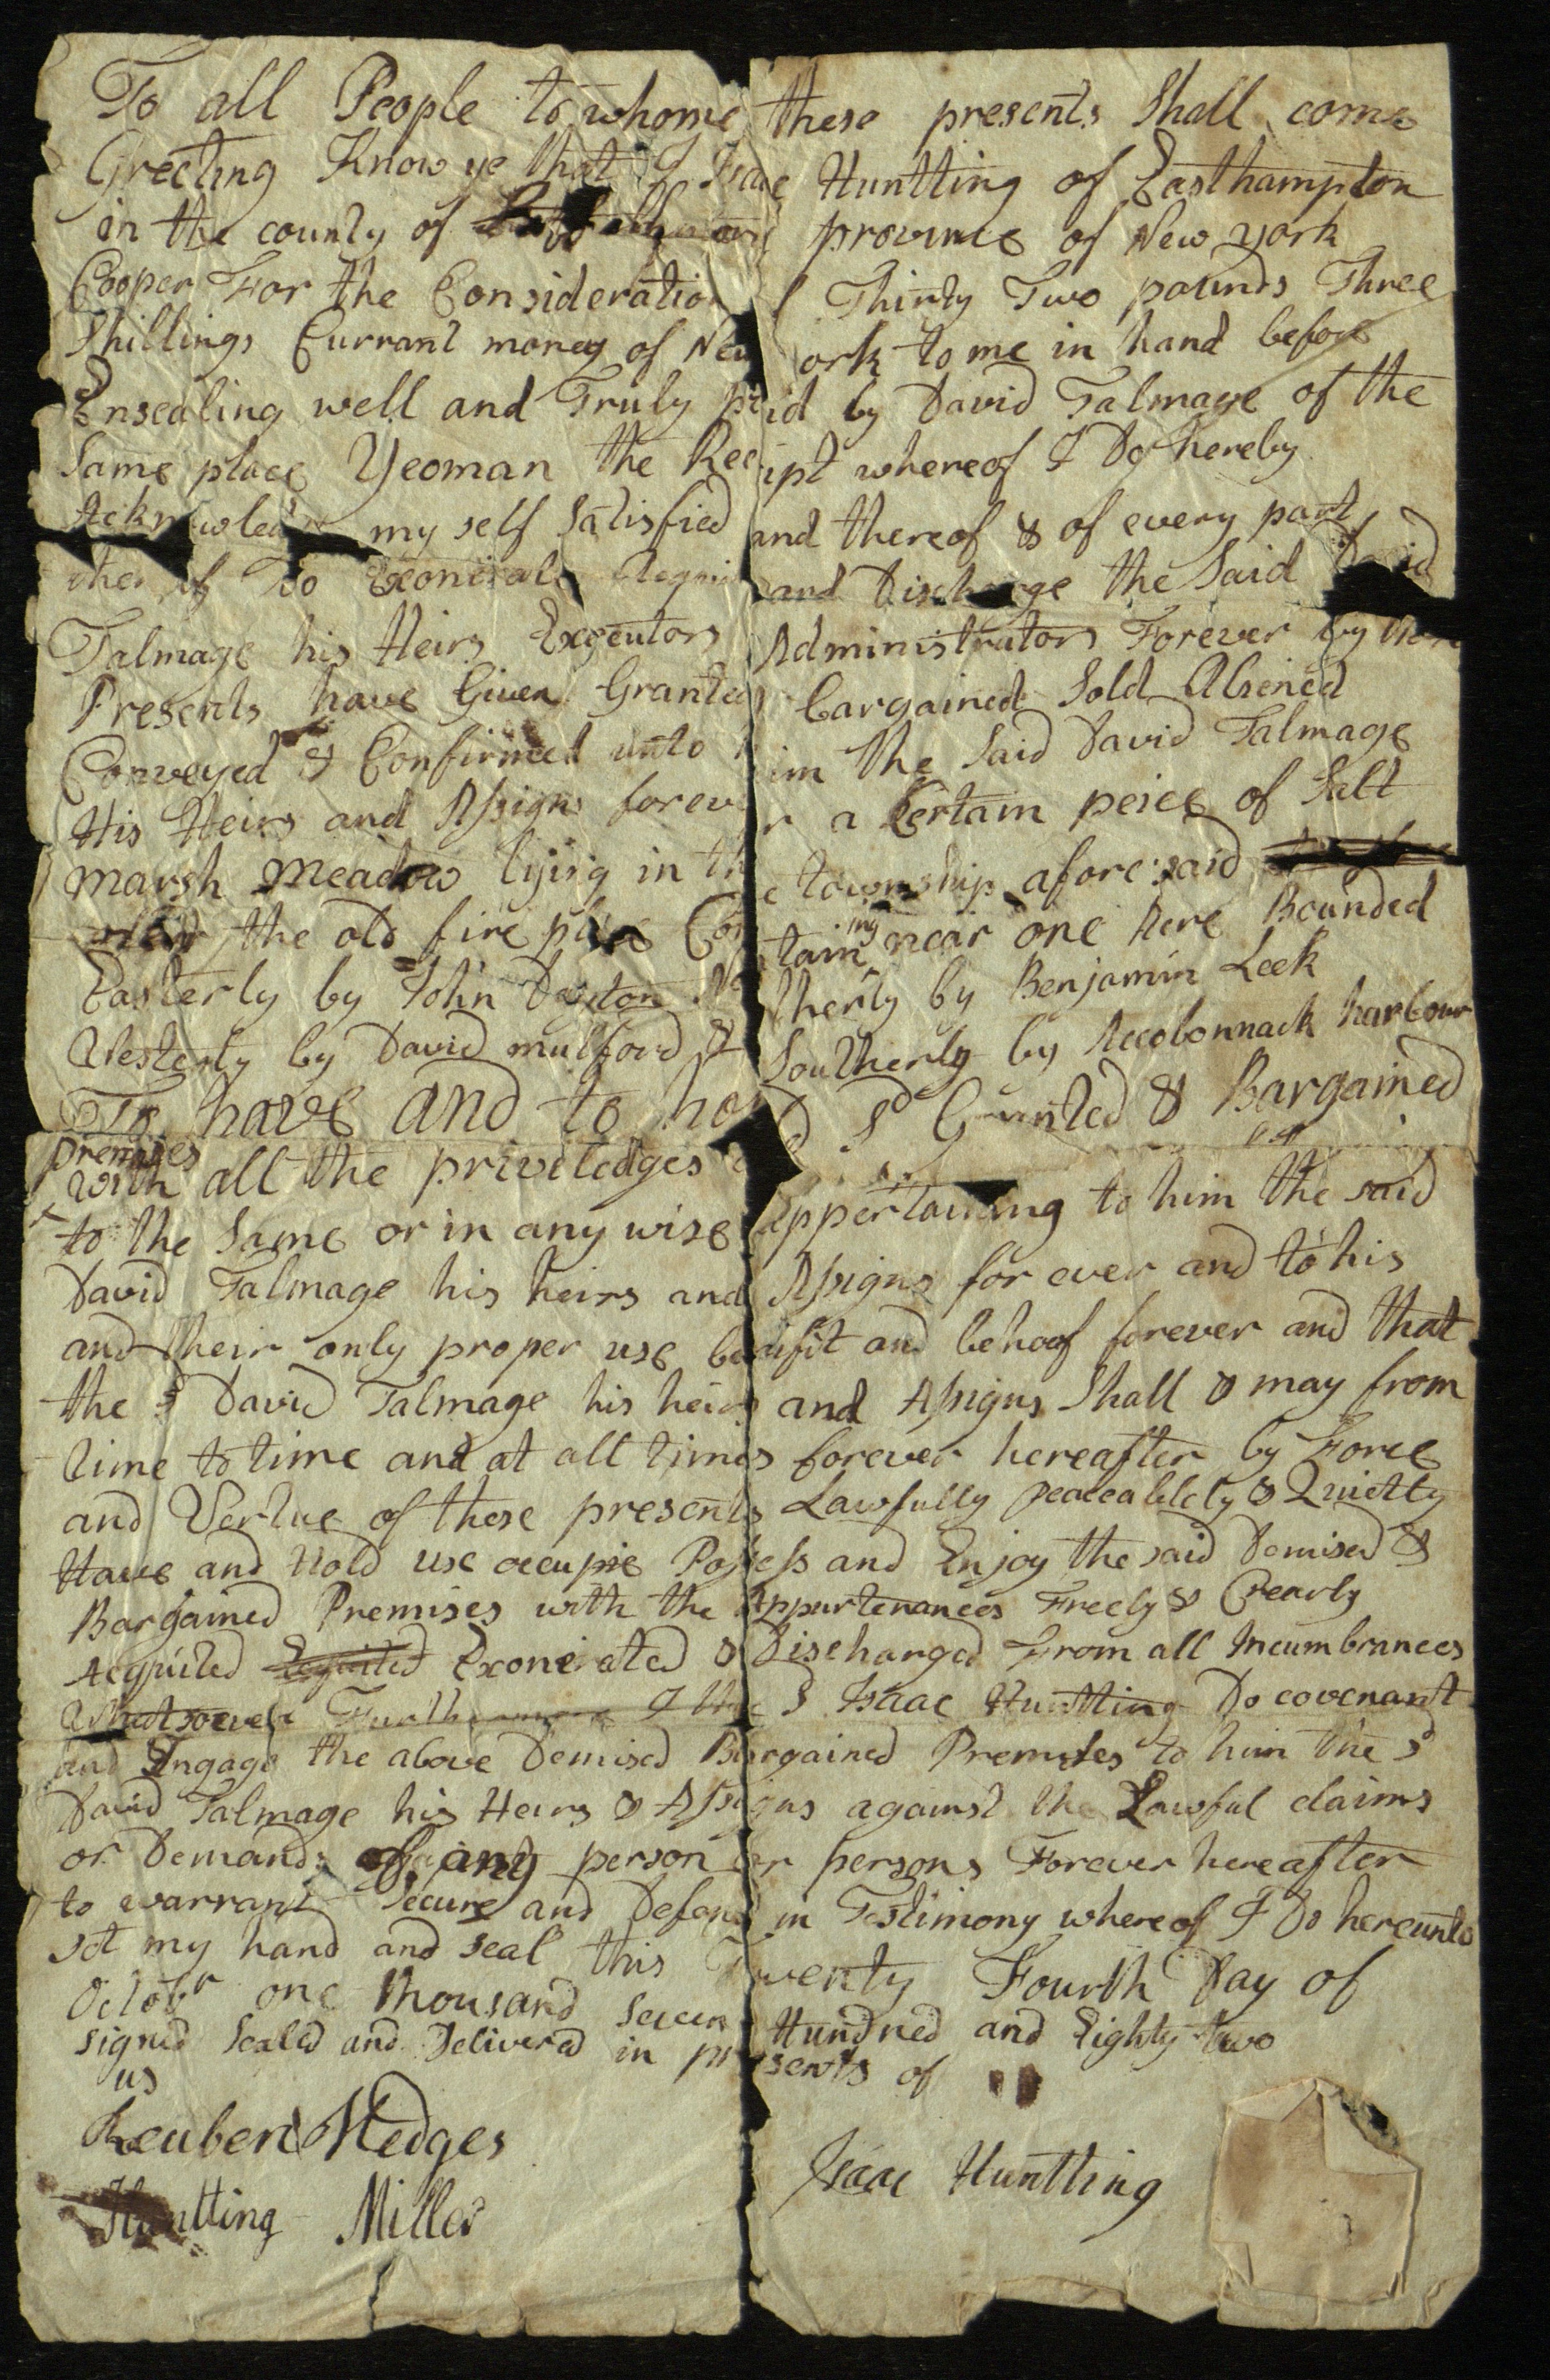 To all People to whome these presents Shall come
Greeting Know ye that I Isaac Huntting of Easthampton
in the county of and province of New york
Cooper For the Consideration Thirty Two pounds Three
Shillings Currant money of New york to me in hand before
Ensealing well and Truly paid by David Talmage of the
Same place Yeoman the Receipt whereof I Do hereby
Acknowledge my self Satisfied and thereof & of every part
thereof Do Exonerate Acquit and Discharge the Said David
Talmage his Heirs Exgeutors Administrators Forever by these
Presents have Given Granted Bargained Sold Aliened
Conveyed & Confirmed unto him the Said David Talmage
His Heirs and Assigns forever a Certain peice of Salt
marsh meadow lying in the township afore said
near the old fire place Containing near one Acre Bounded
Easterly by John Dayton Northerly by Benjamin Leek
Westerly by David mulford & Southerly by Accobonnack harbour
To have and to hold Sd Granted & Bargained
premises
with all the priviledges appertaining to him the said
to the Same or in any wise
David Talmage his heirs and Assigns for ever and to his
and their only proper use benifit and behoof forever and that
the Sd David Talmage his heirs and Assigns Shall & may from
time to time and at all times forever hereafter by Force
and Vertue of these presents Lawfully peaceablely & Quietly
Have and Hold use occupie Possess and Enjoy the said Demised &
Bargained Premises with the Appurtenances Freely & Clearly
Acquited Exonerated & Discharged From all Incumbrances
Whatsoever Furthermore I the Sd Isaac Huntting Do covenant
and Engage the above Demised Bargained Premises to him the Sd
David Talmage his Heirs & Assigns against the Lawful claims
or Demands of any person or persons Forever hereafter
to warrant Secure and Defend in Testimony whereof I Do hereunto
set my hand and seal this Twenty Fourth Day of
Octobr one thousand seven Hundred and Eighty two
signed Sealed and Delivered in presents of
us
Reuben Hedges
Isaac Huntting
Huntting Miller